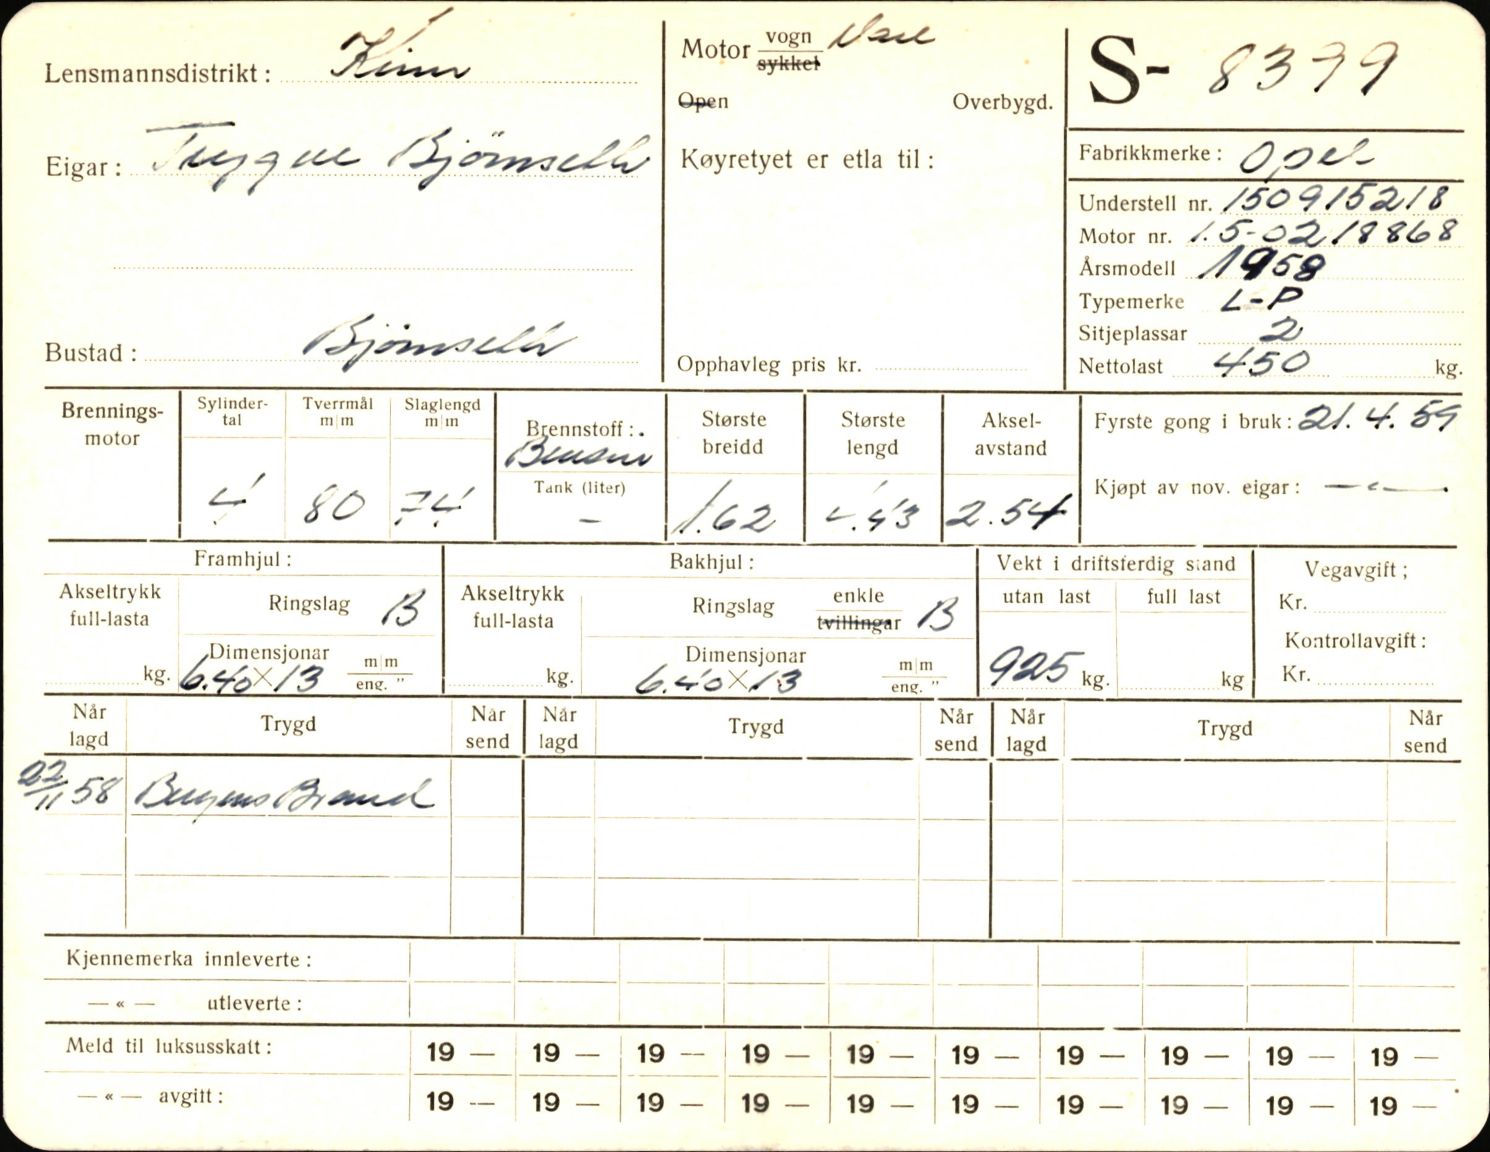 Lensmannsdistrikt: Kinn
Motor vogn Vare
sykkel
S- 8379
Open Overbygd.
Eigar: Trygve Bjørnseth
Køyretyet er etla til:
Fabrikkmerke: Opel
Understell nr. 150915218
Motor nr. 1.5-0218868
Årsmodell 1958
Typemerke L-P
Sitjeplassar 2
Bustad: Bjørnseth
Opphavleg pris kr.
Nettolast 450 kg.
Brennings-
motor
Sylinder-
tal
4
Tverrmål
m|m
80
Slaglengd
m|m
74
Brennstoff:
Bensin
Tank (liter)
–
Største
breidd
1.62
Største
lengd
4.43
Aksel-
avstand
2.54
Fyrste gong i bruk: 21.4.59
Kjøpt av nov. eigar: — « —
Framhjul:
Akseltrykk
full-lasta
kg.
Ringslag B
Dimensjonar
6.40 × 13 m|m
eng. "
Bakhjul:
Akseltrykk
full-lasta
kg.
Ringslag enkle B
tvillingar
Dimensjonar
6.40 × 13 m|m
eng. "
Vekt i driftsferdig stand
utan last full last
925 kg. kg
Vegavgift;
Kr.
Kontrollavgift:
Kr.
Når
lagd Trygd Når
send Når
lagd Trygd Når
send Når
lagd Trygd Når
send
22/11 58 Bergens Brand
Kjennemerka innleverte:
— « — utleverte:
Meld til luksusskatt: 19 — 19 — 19 — 19 — 19 — 19 — 19 — 19 — 19 — 19 —
— « — avgitt: 19 — 19 — 19 — 19 — 19 — 19 — 19 — 19 — 19 — 19 —